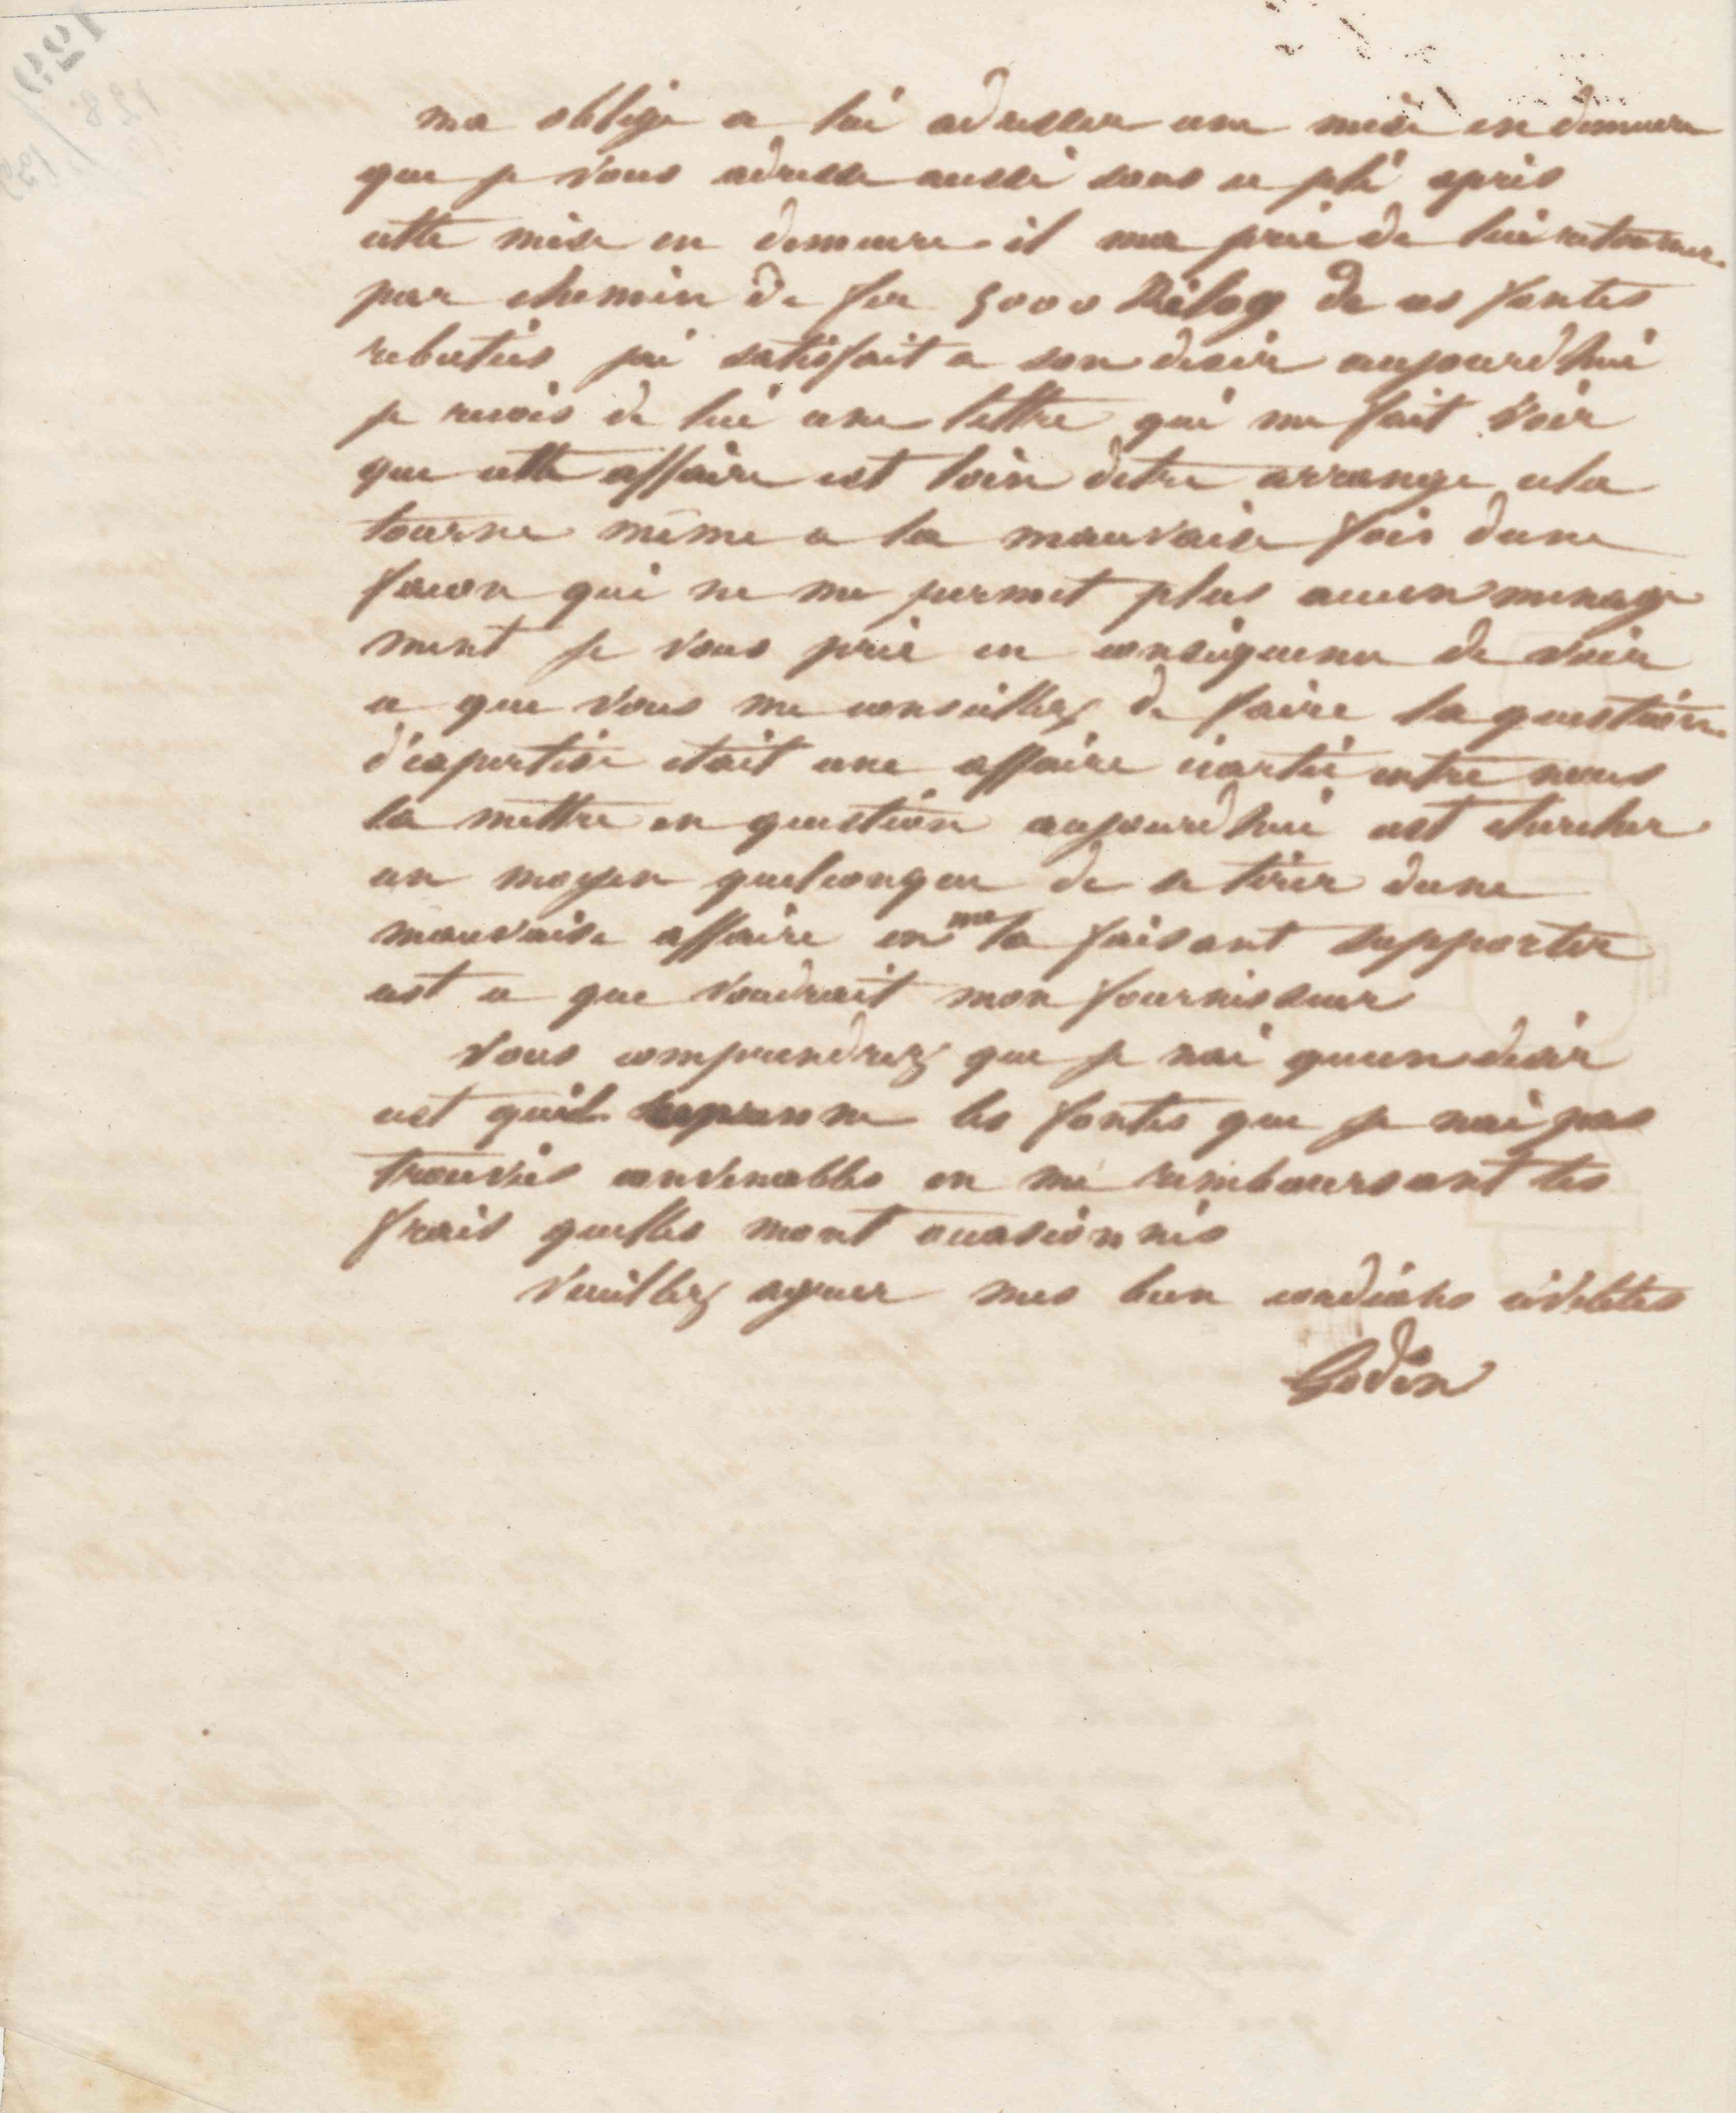 ma obligé a lui adresser une mise en demeure
que je vous adresse aussi sous ce pli après
cette mise en demeure il ma prié de lui retourner
par chemin de fer 5000 Kilog de ces fontes
rebutés jai satisfait a son desir aujourdhui
je recois de lui une lettre qui me fait voir
que cette affaire est loin detre arrange cela
tourne même a la mauvaise fois dune
facon qui ne me permet plus aucun menage
ment je vous prie en conséquence de voir
ce que vous me conseillez de faire la question
d'expertise etait une affaire écarté entre nous
la mettre en question aujourdhui cest chercher
un moyen quelconque de se tirer dune
mauvaise affaire en me la faisant supporter
cest ce que voudrait mon fournisseur
Vous comprendrez que je nai quun desir
cest quil reprenne les fontes que je nai pas
trouvés convenables en me remboursant les
frais quelles mont occasionnés
Veuillez agreer mes bien cordiales civilités
Godin
129
128